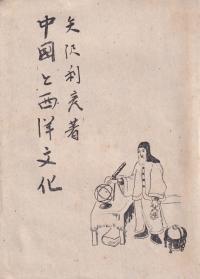 矢沢利彦著
中国と西洋文化